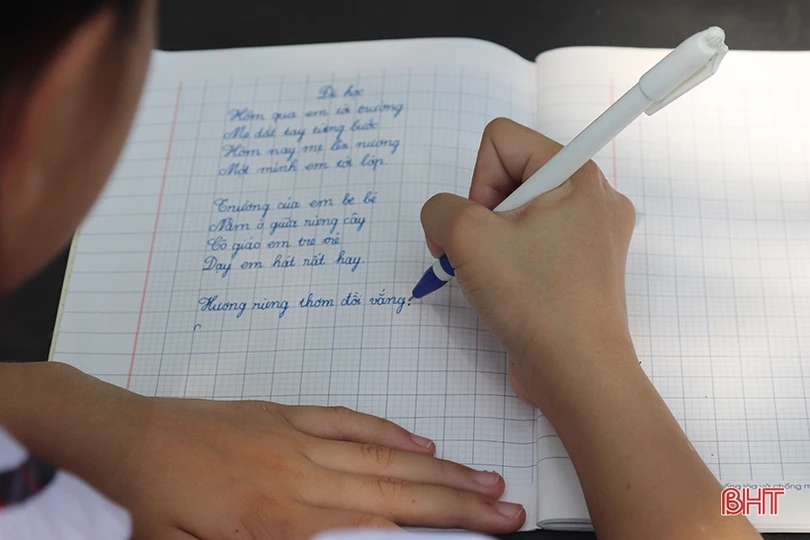 Đi học
Hôm qua em tới trường
Mẹ dắt tay từng bước
Hôm nay mẹ lên nương
Một mình em tới lớp.
Trường của em be bé
Nằm ở giữa rừng cây
Cô giáo em tre trẻ
Dạy em hát rất hay.
Hương rừng thơm đồi vắng
BHT